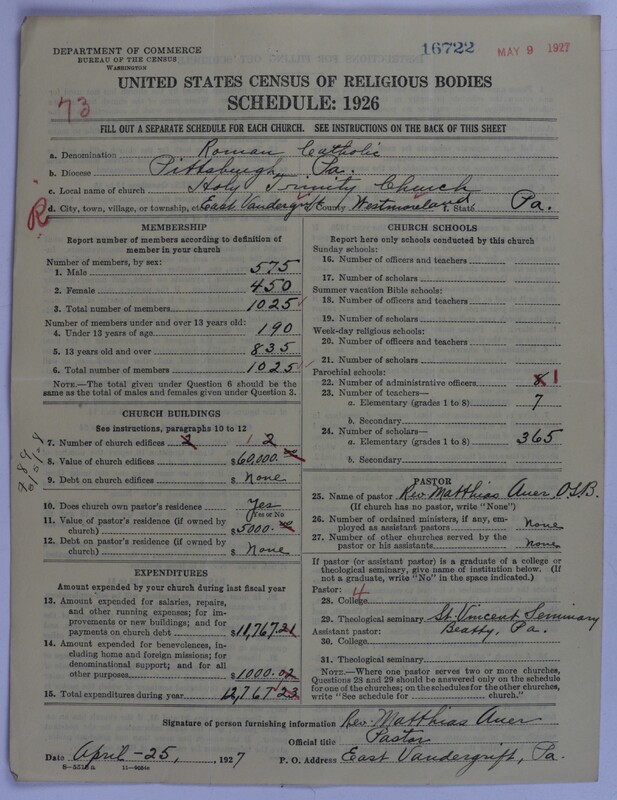 DEPARTMENT OF COMMERCE
BUREAU OF THE CENSUS
WASHINGTON
16722
MAY 9 1927
UNITED STATES CENSUS OF RELIGIOUS BODIES
SCHEDULE: 1926
73
FILL OUT A SEPARATE SCHEDULE FOR EACH CHURCH. SEE INSTRUCTIONS ON THE BACK OF THIS SHEET
a. Denomination Roman Catholic
b. Diocese Pittsburgh, Pa.
c. Local name of church Holy Trinity Church
R
d. City, town, village, or township, etc. East Vandergrift County Westmoreland f. State Pa.
MEMBERSHIP
Report number of members according to definition of
member in your church
Number of members, by sex:
1. Male 575
2. Female 450
3. Total number of members 1025
Number of members under and over 13 years old:
4. Under 13 years of age 190
5. 13 years old and over 835
6. Total number of members 1025
NOTE.—The total given under Question 6 should be the
same as the total of males and females given under Question 3.
CHURCH BUILDINGS
See instructions, paragraphs 10 to 12
7. Number of church edifices 2 1 2
8. Value of church edifices $60,000.00
9. Debt on church edifices $ None
10. Does church own pastor's residence Yes
Yes or No
11. Value of pastor's residence (if owned by
church) $5000.00
12. Debt on pastor's residence (if owned by
church) $ None
EXPENDITURES
Amount expended by church during last fiscal year
13. Amount expended for salaries, repairs,
and other running expenses; for im-
provements or new buildings; and for
payments on church debt $11,767.21
14. Amount expended for benevolences, in-
cluding home and foreign missions; for
denominational support; and for all
other purposes $1000.02
15. Total expenditures during year 12,767.23
CHURCH SCHOOLS
Report here only schools conducted by this church
Sunday schools:
16. Number of officers and teachers
17. Number of scholars
Summer vacation Bible schools:
18. Number of officers and teachers
19. Number of scholars
Week-day religious schools:
20. Number of officers and teachers
21. Number of scholars
Parochial schools:
22. Number of administrative officers 8 1
23. Number of teachers—
a. Elementary (grades 1 to 8) 7
b. Secondary
24. Number of scholars—
a. Elementary (grades 1 to 8) 365
b. Secondary
PASTOR
25. Name of pastor Rev Matthias Auer, O.S.B.
(If church has no pastor, write "None")
26. Number of ordained ministers, if any, em-
ployed as assistant pastors None
27. Number of other churches served by the
pastor or his assistants None
If pastor (or assistant pastor) is a graduate of a college or
theological seminary, give name of institution below. (If
not a graduate, write "No" in the space indicated.)
Pastor: 4
28. College
29. Theological seminary St. Vincent Seminary
Assistant pastor: Beatty, Pa.
30. College
31. Theological seminary
NOTE.—Where one pastor serves two or more churches,
Questions 28 and 29 should be answered only on the schedule
for one of the churches; on the schedules for the other churches,
write "See schedule for church."
Signature of person furnishing information Rev Matthias Auer
Official title Pastor
Date April-25, 1927 P. O. Address East Vandergrift, Pa.